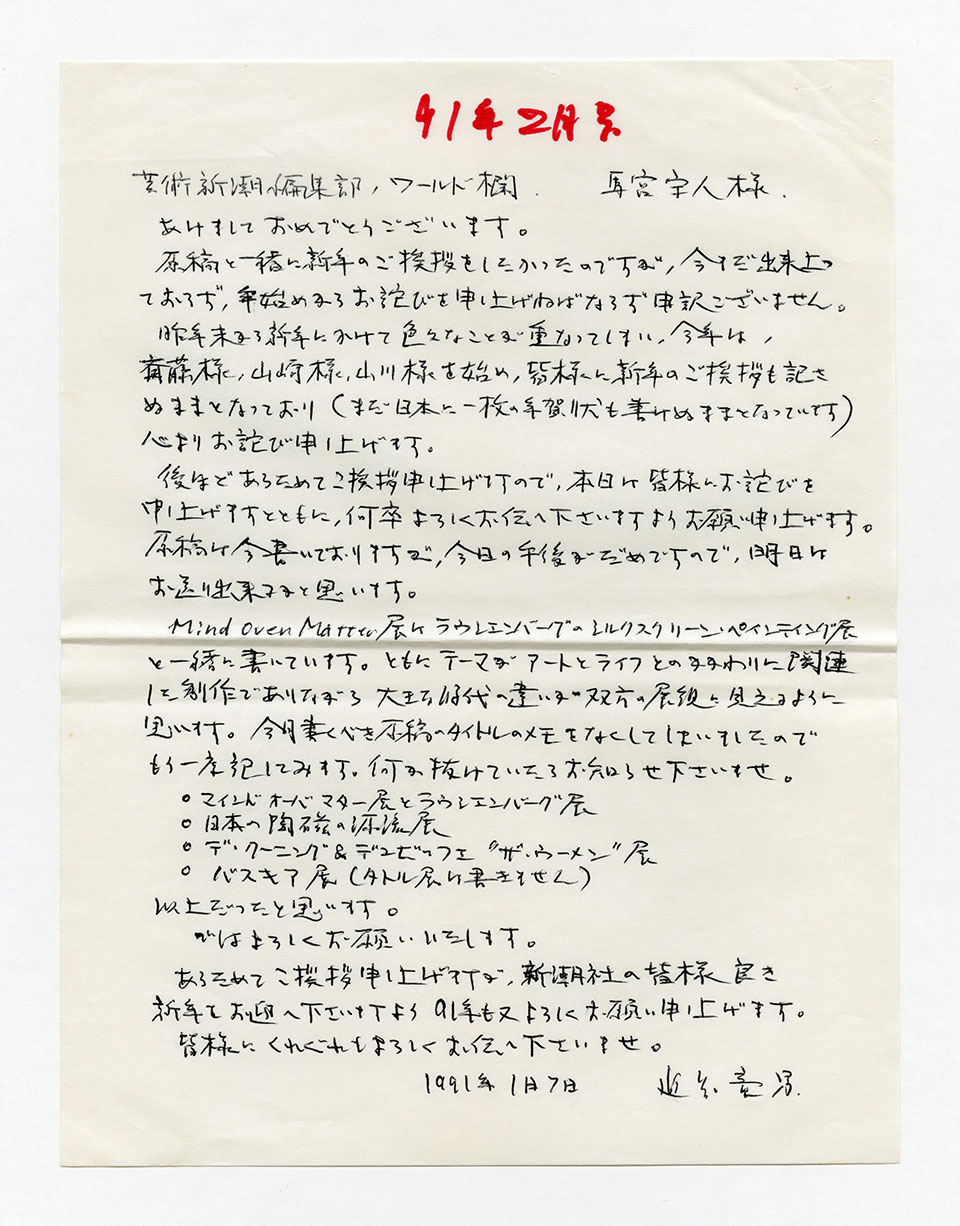 91年2月号
芸術新潮編集部，ワールド欄． 馬宮字人様．
あけましておめでとうございます。
原稿と一緒に新年のご挨拶をしたかったのですが，今まだ出来上っ
ておらず，年始めからお詫びを申上げねばならず申訳ございません。
昨年末から新年にかけて色々なことが重なってしまい，今年は，
斉藤様，山崎様，山川様を始め，皆様に新年のご挨拶も記さ
ぬままとなっており（まだ日本に一枚の年賀状も書けぬままとなっています）
心よりお詫び申し上げます。
後ほどあらためてご挨拶申上げますので，本日は皆様にお詫びを
申上げますとともに，何卒よろしくお伝へ下さいますようお願い申上げます。
原稿は今書いておりますが，今日の午後がだめですので，明日は
お送り出来るかと思います。
Mind Over Matter展はラウシェンバーグのシルクスクリーン・ペインティング展
と一緒に書いています。ともにテーマがアートとライフとのかかわりに関連
した創作でありながら 大きな時代の違いが双方の展観に見えるように
思います。今月書くべき原稿のタイトルのメモをなくしてしまいましたので
もう一度記してみます。何か抜けていたらお知らせ下さいませ。
○ マインド オーバ マター展とラウシエンバーグ展
○ 日本の陶磁の源流展
○ デ・クーニング＆デュビュッフェ “ザ・ウーメン”展
○ バスキア展（タトル展は書きません）
以上だったと思います。
ではよろしくお願いいたします。
あらためてご挨拶申上げますが，新潮社の皆様良き
新年をお迎へ下さいますよう 91年も又よろしくお願い申上げます。
皆様にくれぐれもよろしくお伝へ下さいませ。
1991年1月7日 近藤竜男．